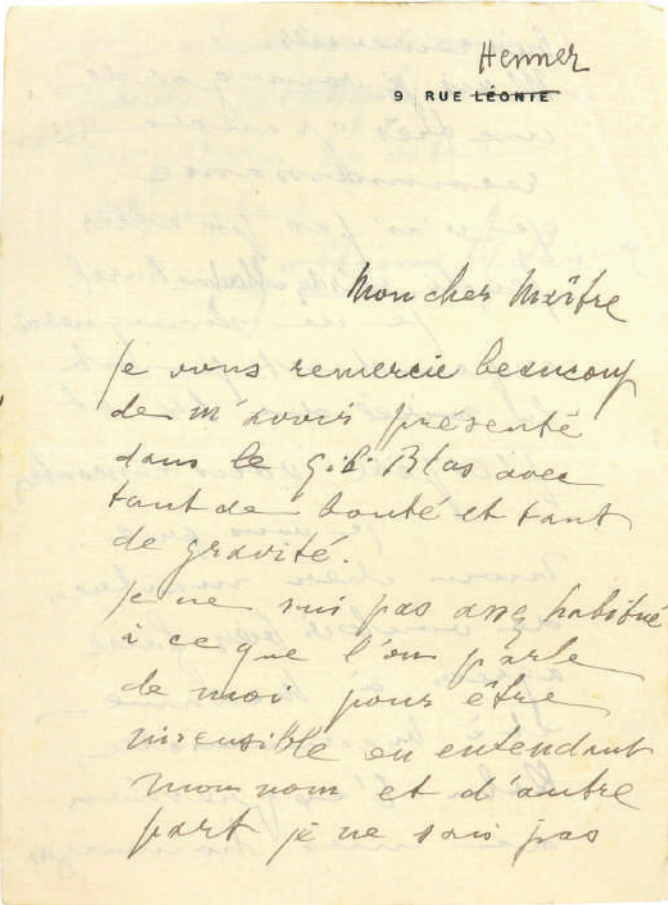 Henner
9 RUE LÉONIE
Mon cher Maître
Je vous remercie beaucoup
de m'avoir présenté
dans le Gil Blas avec
tant de bonté et tant
de gravité.
Je ne suis pas assez habitué
à ce que l'on parle
de moi pour être
insensible en entendant
mon nom et d'autre
part je ne sais pas